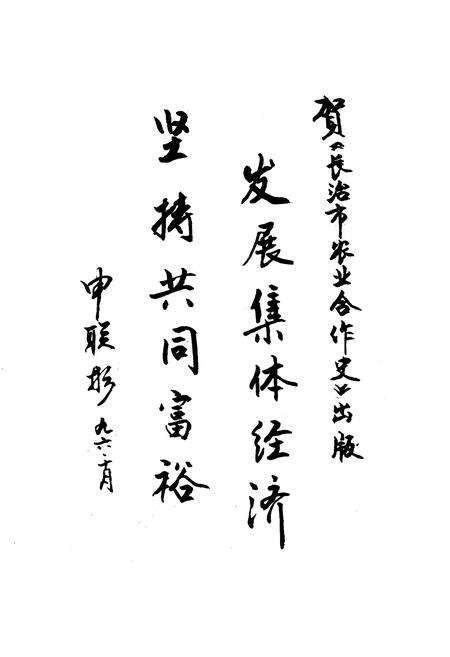 贺《长治市农业合作史》出版
发展集体经济
坚持共同富裕
申联彬
九六.十月